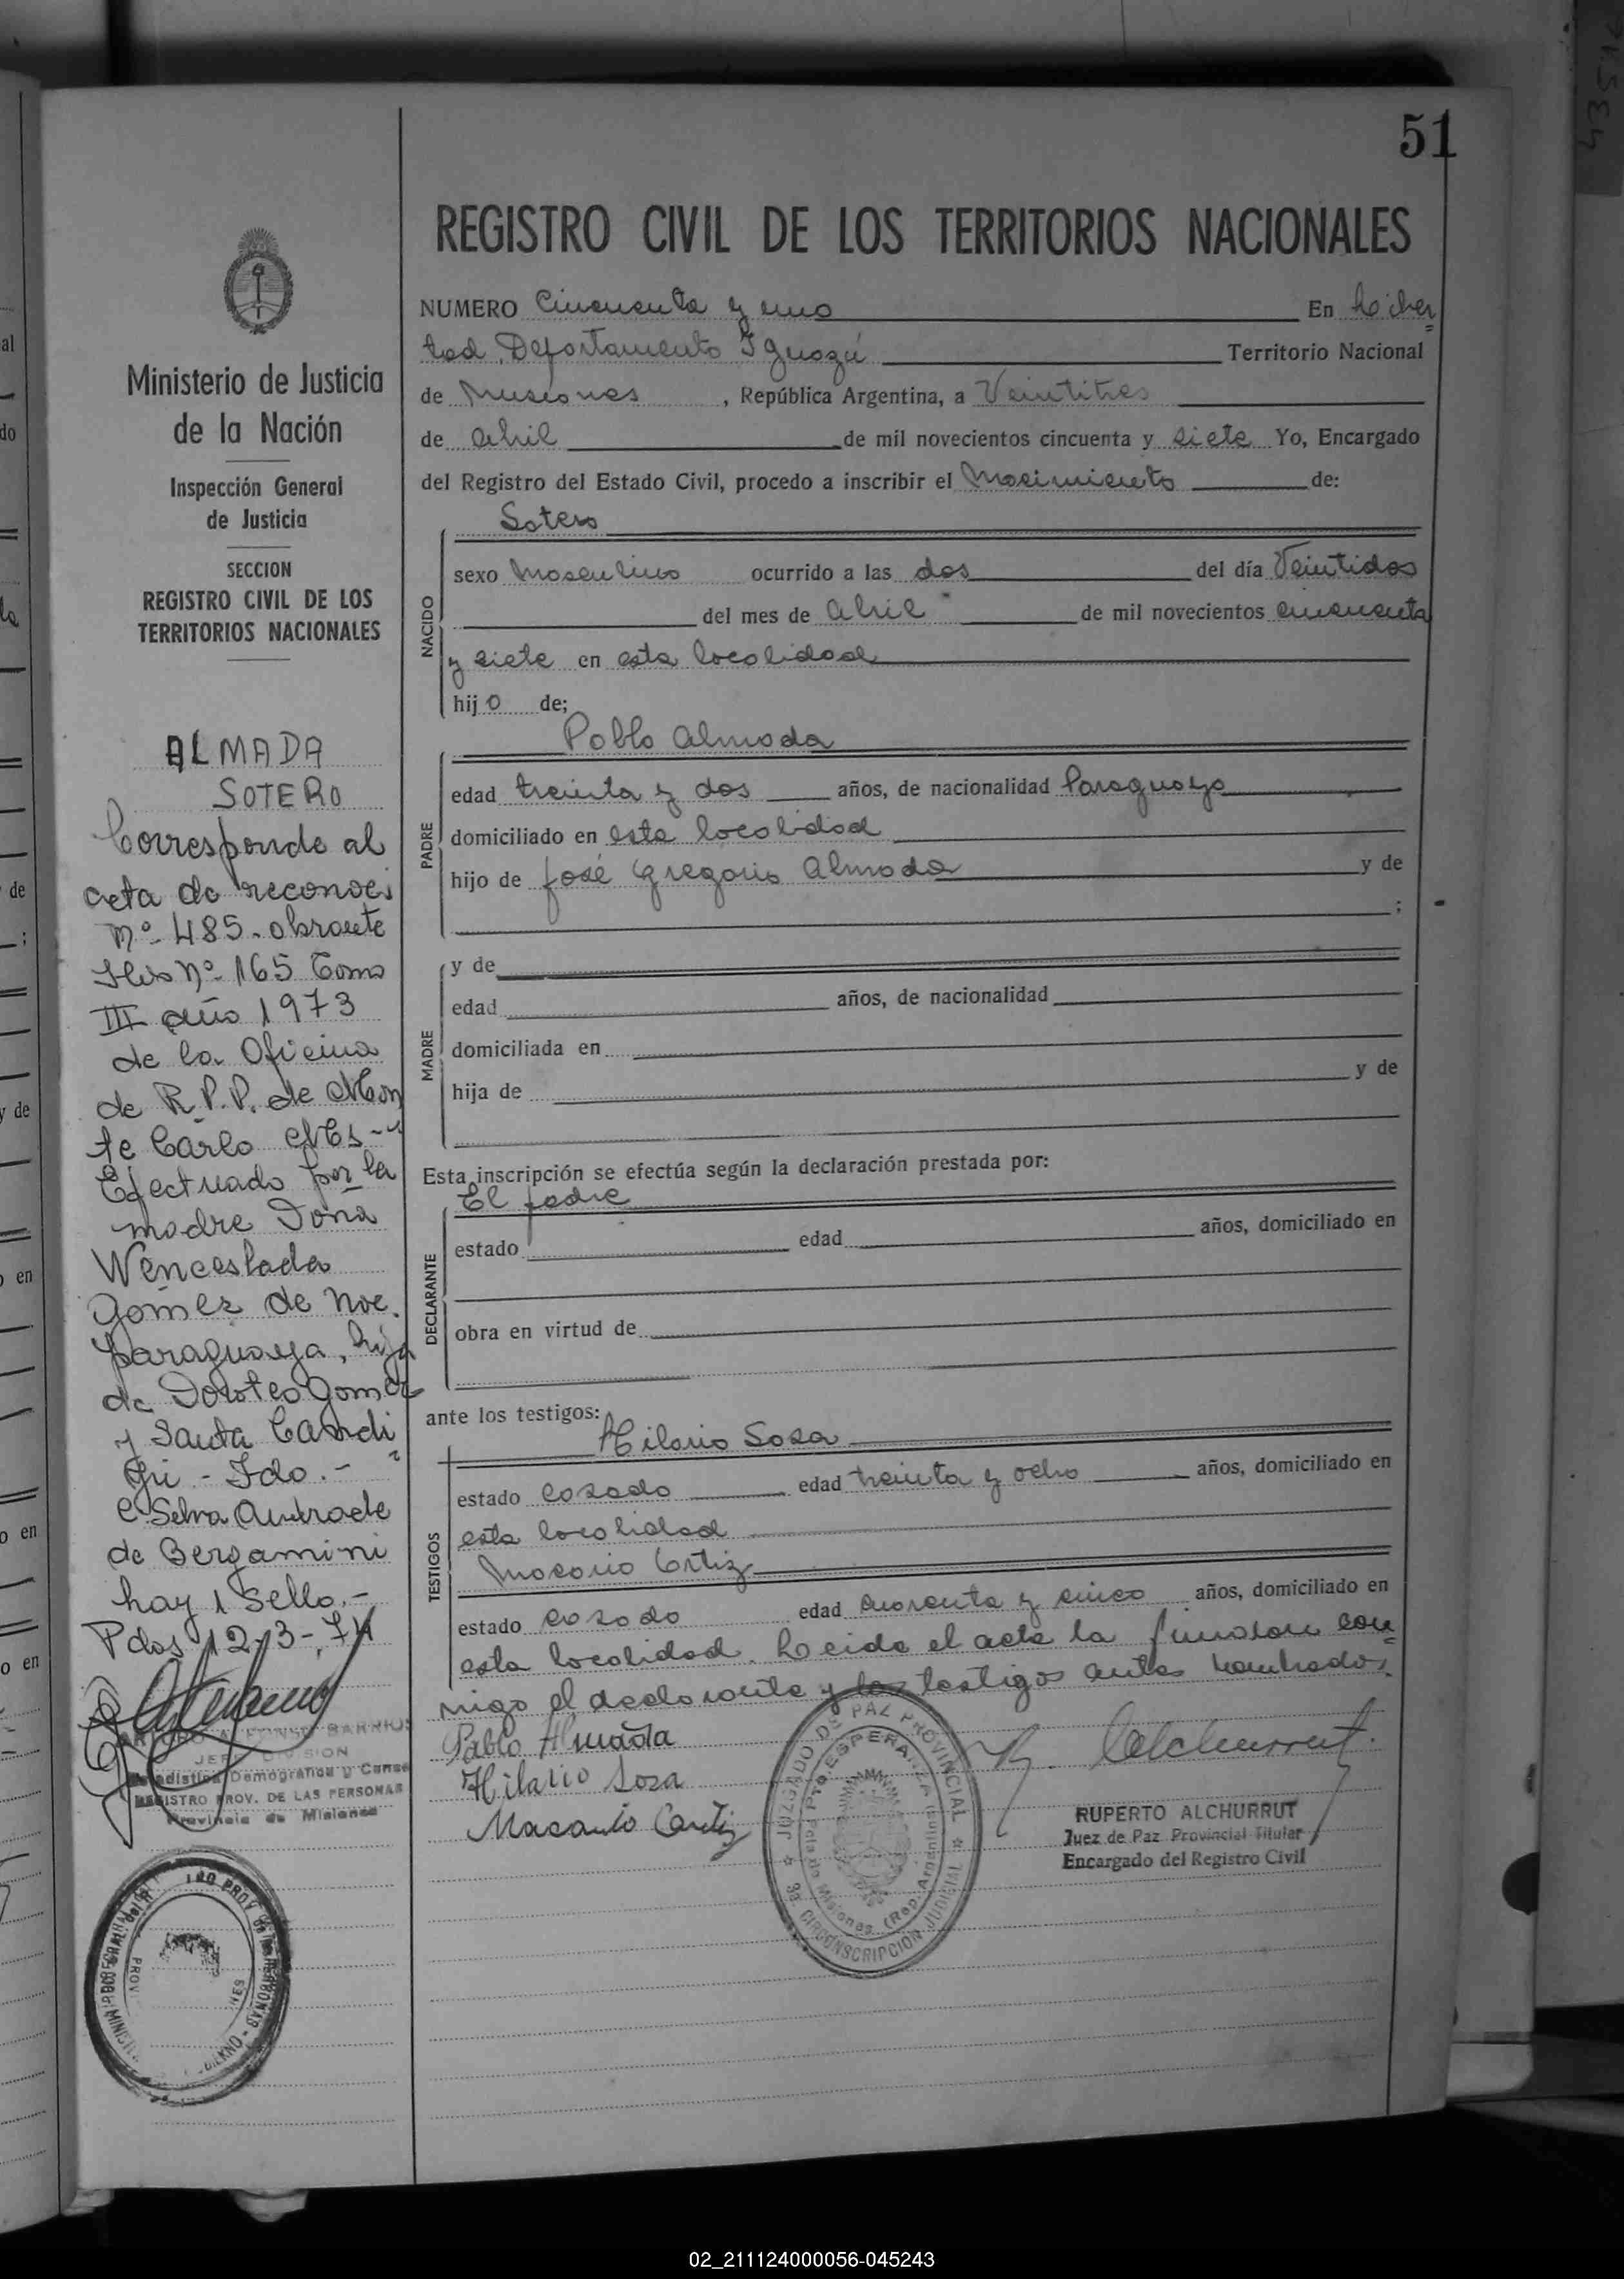 51
REGISTRO CIVIL DE LOS TERRITORIOS NACIONALES
Ministerio de Justicia
de la Nación
Inspección General
de Justicia
SECCION
REGISTRO CIVIL DE LOS
TERRITORIOS NACIONALES
ALMADA
SOTERO
Corresponde al
acta de reconoci
nº 485 - obrante
nº 165 Tomo
III año 1973
de la Oficina
de R.P.P. de Mon
te Carlo Ms -
Efectuado por la
madre Dona
Wenceslada
Gomez de Noe.
paraguaya, hija
de Doroteo Gomez
y Santa
- Fdo. -
Selva Andrade
de Bergamini
hay 1 Sello.-
Pdas 12-3-74
BARRIOS
JEFE DIVISION
Estadistica Demografica y Censo
REGISTRO PROV. DE LAS PERSONAS
Provincia de Misiones
NUMERO Cincuenta y uno En Liber
tad, Departamento Iguazú Territorio Nacional
de Misiones , República Argentina, a Veintitres
de abril de mil novecientos cincuenta y siete Yo, Encargado
del Registro del Estado Civil, procedo a inscribir el Nacimiento de:
Sotero
NACIDO
sexo Masculino ocurrido a las dos del día Veintidos
del mes de abril de mil novecientos cincuenta
y siete en esta localidad
hijo de;
Pablo Almada
PADRE
edad treinta y dos años, de nacionalidad Paraguaya
domiciliado en esta localidad
hijo de José Gregorio Almada y de
;
MADRE
y de
edad años, de nacionalidad
domiciliada en
hija de y de
Esta inscripción se efectúa según la declaración prestada por:
El padre
DECLARANTE
estado edad años, domiciliado en
obra en virtud de
ante los testigos:
Hilario Sosa
TESTIGOS
estado casado edad treinta y ocho años, domiciliado en
esta localidad
Macario Ortiz
estado casado edad cuarenta y cinco años, domiciliado en
esta localidad. Leida el acta la firmaron con=
migo el declarante y los testigos antes nombrados.
Pablo Almada
Hilario Sosa
Macario Ortiz
JUZGADO DE PAZ PROVINCIAL
Pto. ESPERANZA
Pcia. de Misiones (Rep. Argentina)
3a. CIRCUNSCRIPCION JUDICIAL
R. Alchurrut.
RUPERTO ALCHURRUT
Juez de Paz Provincial Titular
Encargado del Registro Civil
02_211124000056-045243